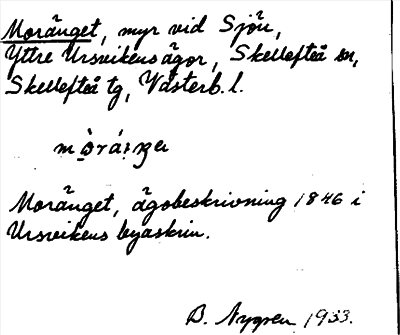 Moränget, myr vid Sjön,
Yttre Ursvikens ägor, Skellefteå sn,
Skellefteå tg, Västerb. l.
Moränget, ägobeskrivning 1846 i
Ursvikens byaskrin.
B. Nygren 1933.